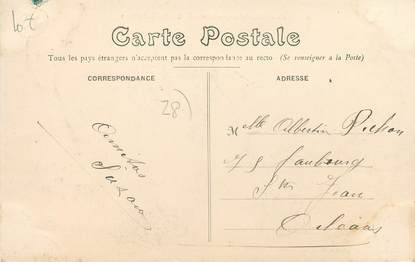 lot
Carte Postale
Tous les pays étrangers n'acceptent pas la correspondance au recto (Se renseigner à la Poste)
CORRESPONDANCE
ADRESSE
28
Amitiés
Suzanne
Mlle Albertin Pichon
75 faubourg
St Jean
Orléans